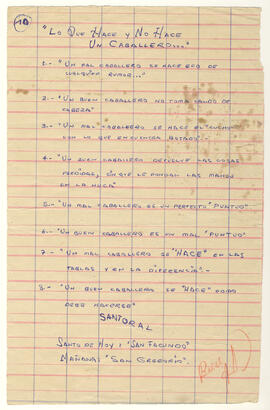 10
"LO QUE HACE Y NO HACE
UN CABALLERO..."
1.- "UN MAL CABALLERO SE HACE ECO DE
CUALQUIER RUMOR..."
2.- "UN BUEN CABALLERO NO TOMA DE
CABEZA"
3.- "UN MAL CABALLERO SE HACE EL "CUCHO"
CON LO QUE ENCUENTRA BOTADO".-
4.- "UN BUEN CABALLERO DEVUELVE LAS COSAS
PERDIDAS, SIN QUE LE PONGAN LAS MANOS
EN LA NUCA"
5.- "UN MAL CABALLERO ES UN PERFECTO "PUNTUD"
6.- "UN BUEN CABALLERO ES UN MAL "PUNTUD"
7.- "UN MAL CABALLERO SE "HACE" EN LAS
TABLAS Y EN LA DIFERENCIA".-
8.- "UN BUEN CABALLERO SE "HACE" COMO
DEBE HACERSE"
SANTORAL
SANTO DE HOY: "SAN FACUNDO"
MAÑANA: "SAN GREGORIO"